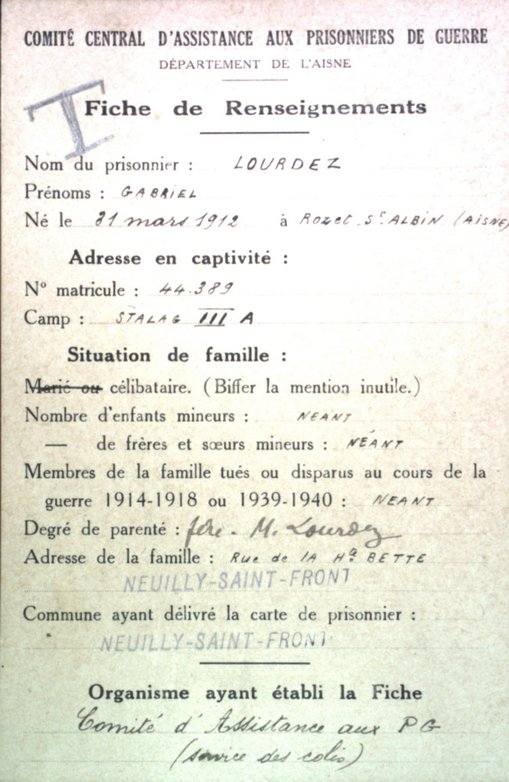 COMITÉ CENTRAL D'ASSISTANCE AUX PRISONNIERS DE GUERRE
DÉPARTEMENT DE L'AISNE
T
Fiche de Renseignements
Nom du prisonnier : LOURDEZ
Prénoms : GABRIEL
Né le 31 mars 1912 à ROZET ST ALBIN (AISNE)
Adresse en captivité :
N° matricule : 44.389
Camp : STALAG III A
Situation de famille :
Marié ou célibataire. (Biffer la mention inutile.)
Nombre d'enfants mineurs : NEANT
— de frères et sœurs mineurs : NÉANT
Membres de la famille tués ou disparus au cours de la
guerre 1914-1918 ou 1939-1940 : NEANT
Degré de parenté : père - M. Lourdez
Adresse de la famille : Rue de LA Hte BETTE
NEUILLY-SAINT-FRONT
Commune ayant délivré la carte de prisonnier :
NEUILLY-SAINT-FRONT
Organisme ayant établi la Fiche
Comité d'Assistance aux PG
(service des colis)